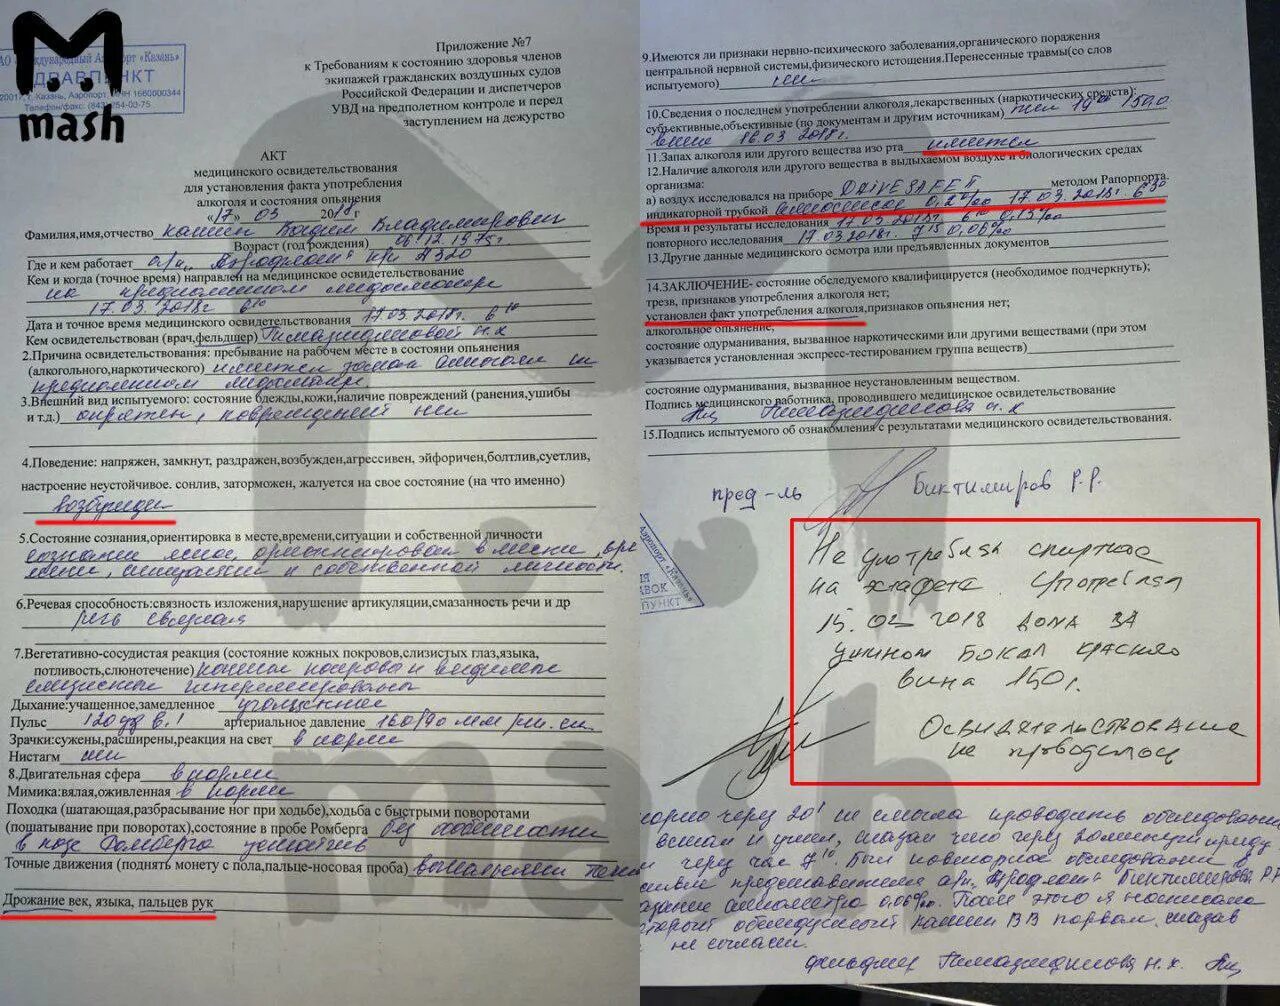 mash
АО «Международный Аэропорт «Казань»
ЗДРАВПУНКТ
420017, г. Казань, Аэропорт, ИНН 1660000344
Телефон/факс: (843) 254-03-75
Приложение №7
к Требованиям к состоянию здоровья членов
экипажей гражданских воздушных судов
Российской Федерации и диспетчеров
УВД на предполетном контроле и перед
заступлением на дежурство
АКТ
медицинского освидетельствования
для установления факта употребления
алкоголя и состояния опьянения
«17» 03 2018г
Фамилия,имя,отчество Владимирович
Возраст (год рождения) 06.12.1975г
Где и кем работает а/к „Аэрофлот" А320
Кем и когда (точное время) направлен на медицинское освидетельствование
на предполетном медосмотре
17.03.2018г 6 10
Дата и точное время медицинского освидетельствования 17.03.2018г. 6 10
Кем освидетельствован (врач,фельдшер) Гимазидиновой Н.К
2.Причина освидетельствования: пребывание на рабочем месте в состоянии опьянения
(алкогольного,наркотического) имеется запах алкоголя на
предполетном медосмотре.
3.Внешний вид испытуемого: состояние одежды,кожи,наличие повреждений (ранения,ушибы
и т.д.) опрятен, повреждений нет
4.Поведение: напряжен, замкнут, раздражен,возбужден,агрессивен, эйфоричен,болтлив,суетлив,
настроение неустойчивое. сонлив, заторможен, жалуется на свое состояние (на что именно)
возбужден
5.Состояние сознания,ориентировка в месте,времени,ситуации и собственной личности
сознание ясное, ориентирован в месте, вре
мени, ситуации и собственной личности.
6.Речевая способность:связность изложения,нарушение артикуляции,смазанность речи и др
речь связная
7.Вегетативно-сосудистая реакция (состояние кожных покровов,слизистых глаз,языка,
потливость,слюнотечение) кожные покровы и видимые
слизистые гиперемированы
Дыхание:учащенное,замедленное учащенное
Пульс 120 уд в 1 артериальное давление 160/90 мм рт. ст.
Зрачки:сужены,расширены,реакция на свет в норме
Нистагм нет
8.Двигательная сфера в норме
Мимика:вялая,оживленная в норме
Походка (шатающая,разбрасывание ног при ходьбе),ходьба с быстрыми поворотами
(пошатывание при поворотах),состояние в пробе Ромберга без особенности
в позе Ромберга устойчив
Точные движения (поднять монету с пола,пальце-носовая проба) выполняет
Дрожание век, языка, пальцев рук
9.Имеются ли признаки нервно-психического заболевания,органического поражения
центральной нервной системы,физического истощения.Перенесенные травмы(со слов
испытуемого) нет
10.Сведения о последнем употреблении алкоголя,лекарственных (наркотических) средств):
субъективные,объективные (по документам и другим источникам) 150,0
вина 16.03 2018г.
11.Запах алкоголя или другого вещества изо рта имеется
12.Наличие алкоголя или другого вещества в выдыхаемом воздухе и биологических средах
организма:
а) воздух исследовался на приборе DRIVESAFE II методом Рапорпорта.
индикаторной трубкой 0,2‰ 17.03.2018г 6 30
Время и результаты исследования 17.03 2018г 0,13‰
повторного исследования 17.03.2018г. 7 15 0,06‰
13.Другие данные медицинского осмотра или предъявленных документов
14.ЗАКЛЮЧЕНИЕ- состояние обследуемого квалифицируется (необходимое подчеркнуть);
трезв, признаков употребления алкоголя нет;
установлен факт употребления алкоголя,признаков опьянения нет;
алкогольное опьянение;
состояние одурманивания, вызванное наркотическими или другими веществами (при этом
указывается установленная экспресс-тестированием группа веществ)
состояние одурманивания, вызванное неустановленным веществом.
Подпись медицинского работника, проводившего медицинское освидетельствование
Гимазидинова Н.К
15.Подпись испытуемого об ознакомления с результатами медицинского освидетельствования.
пред-ль Биктимиров Р.Р.
Аэропорт «Казань»
Не употреблял спиртное
на эстафете. Употреблял
15.02 2018 дома за
ужином бокал красного
вина 150г.
Освидетельствование
не проводилось
через 20' не смогла проводить обследован
встал и ушел, сказал что через 20 минут приду
через час 7 10. Был повторное обследование в
представителя а/к „Аэрофлот" Биктимирова Р.Р
алкометра 0,06‰. После этого я написала
обследуемый В.В порвал, сказав
не согласен.
фельдшер Гимазидинова Н.К.
mash